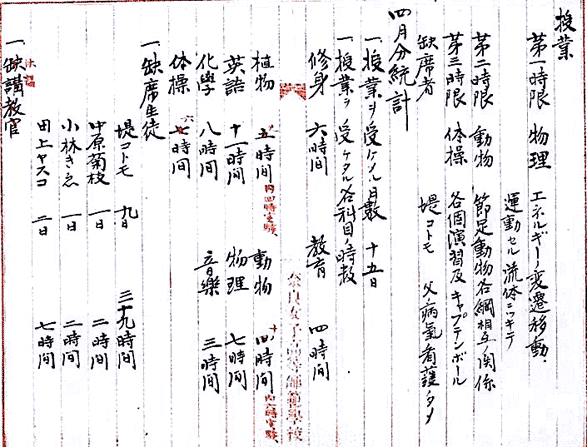 授業
第一時限 物理 エネルギーノ変遷移動
運動セル流体ニツキテ
第二時限 動物 節足動物各綱相互ノ関係
第三時限 体操 各個演習及キャプテンボール
缺席者 堤コトモ 父ノ病氣看護ノタメ
四月分統計
一、授業ヲ受ケシ日數 十五日
一、授業ヲ受ケタル各科目ノ時数
修身 六時間 教育 四時間
植物 五時間 内四時実験 動物 十四時間 内六時実験
英語 十一時間 物理 七時間
化學 八時間 音樂 三時間
体操 六時間
一、缺席生徒
堤コトモ 九日 三十九時間
中原菊枝 一日 二時間
小林きゑ 一日 二時間
田上ヤスコ 二日 七時間
一、缺講教官
奈良女子高等師範學校